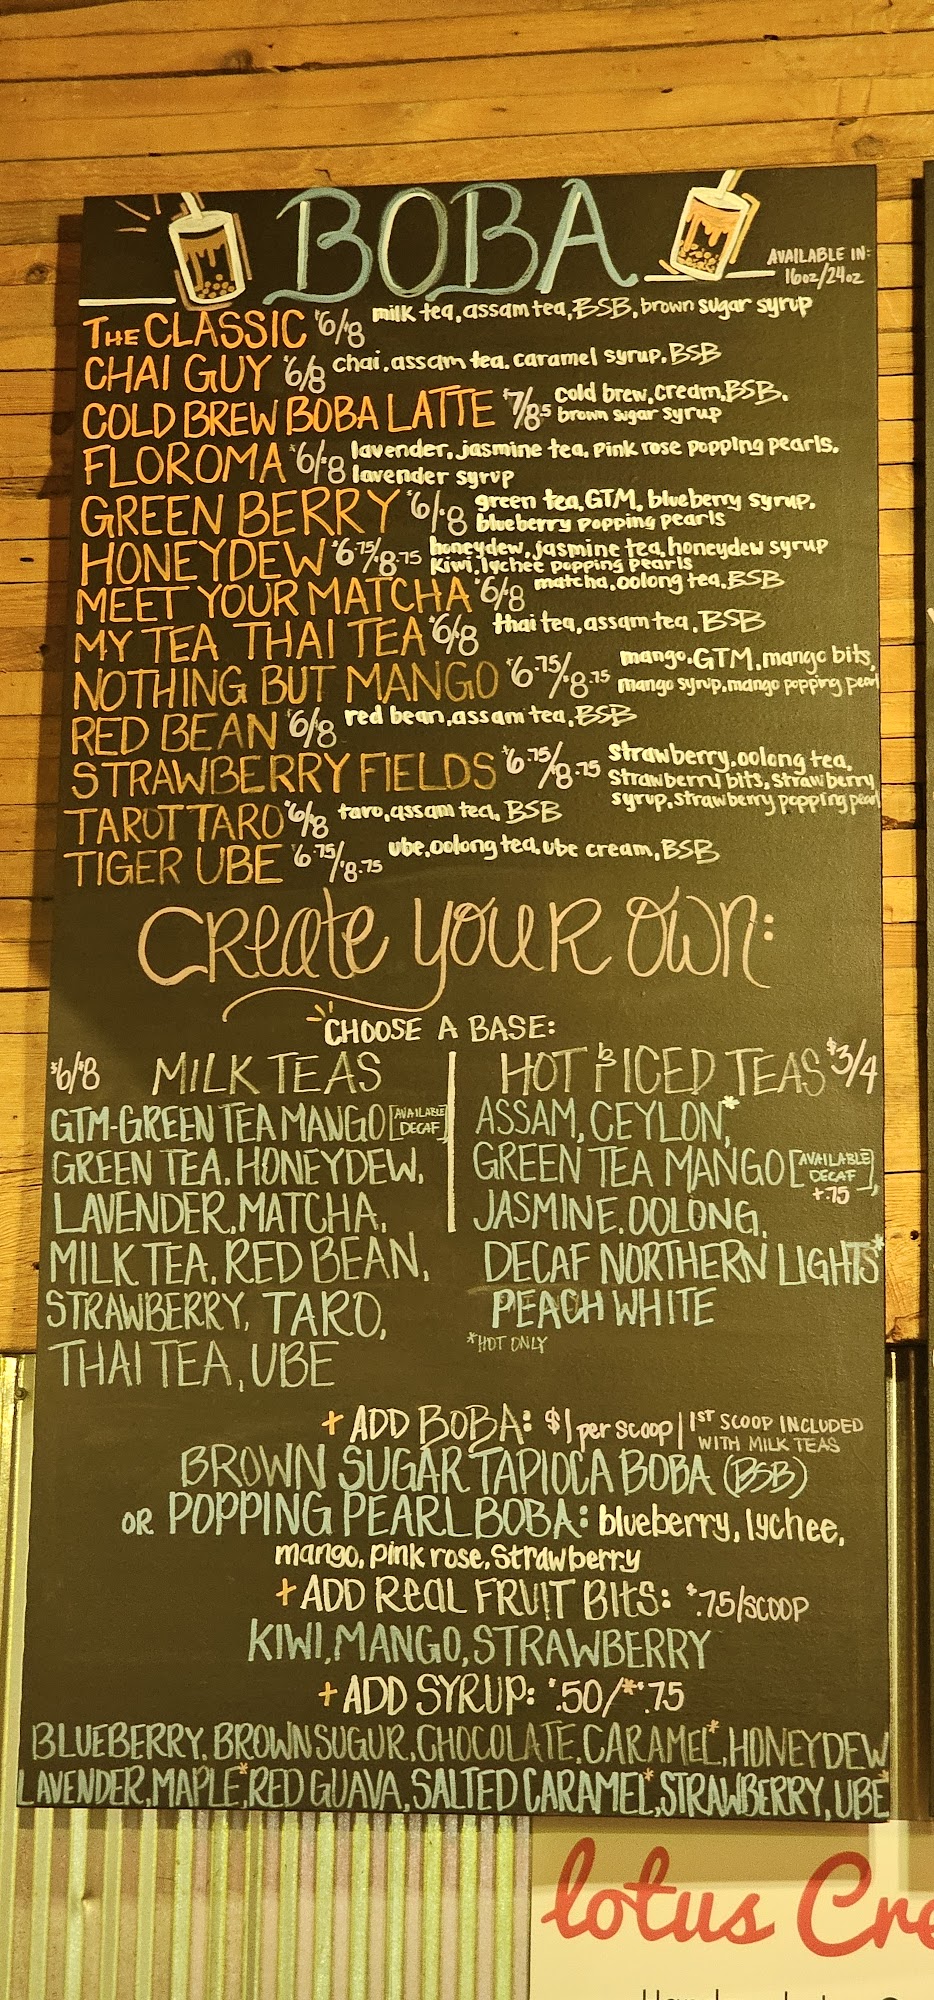 BOBA
AVAILABLE IN:
16oz/24oz
THE CLASSIC $6/8 milk tea, assam tea, BSB, brown sugar syrup
CHAI GUY $6/8 chai, assam tea, caramel syrup, BSB
COLD BREW BOBA LATTE $7/8.5 cold brew, cream, BSB,
brown sugar syrup
FLOROMA $6/8 lavender, jasmine tea, pink rose popping pearls,
lavender syrup
GREEN BERRY $6/8 green tea, GTM, blueberry syrup,
blueberry popping pearls
HONEYDEW $6.75/8.75 honeydew, jasmine tea, honeydew syrup
Kiwi, lychee popping pearls
MEET YOUR MATCHA $6/8 matcha, oolong tea, BSB
MY TEA THAI TEA $6/8 thai tea, assam tea, BSB
NOTHING BUT MANGO $6.75/8.75 mango, GTM, mango bits,
mango syrup, mango popping pearl
RED BEAN $6/8 red bean, assam tea, BSB
STRAWBERRY FIELDS $6.75/8.75 strawberry, oolong tea,
strawberry bits, strawberry
syrup, strawberry popping pearl
TAROT TARO $6/8 taro, assam tea, BSB
TIGER UBE $6.75/$8.75 ube, oolong tea, ube cream, BSB
Create your own:
CHOOSE A BASE:
$6/$8 MILK TEAS
GTM-GREEN TEA MANGO [AVAILABLE DECAF]
GREEN TEA, HONEYDEW,
LAVENDER, MATCHA,
MILK TEA, RED BEAN,
STRAWBERRY, TARO,
THAI TEA, UBE
HOT & ICED TEAS $3/4
ASSAM, CEYLON,*
GREEN TEA MANGO [AVAILABLE DECAF +.75],
JASMINE, OOLONG,
DECAF NORTHERN LIGHTS*
PEACH WHITE
*HOT ONLY
+ ADD BOBA: $1 per scoop | 1ST SCOOP INCLUDED
WITH MILK TEAS
BROWN SUGAR TAPIOCA BOBA (BSB)
OR POPPING PEARL BOBA: blueberry, lychee,
mango, pink rose, strawberry
+ ADD REAL FRUIT BITS: $.75/SCOOP
KIWI, MANGO, STRAWBERRY
+ ADD SYRUP: $.50/*$.75
BLUEBERRY, BROWN SUGUR, CHOCOLATE, CARAMEL*, HONEYDEW
LAVENDER, MAPLE*, RED GUAVA, SALTED CARAMEL*, STRAWBERRY, UBE*
lotus Cre